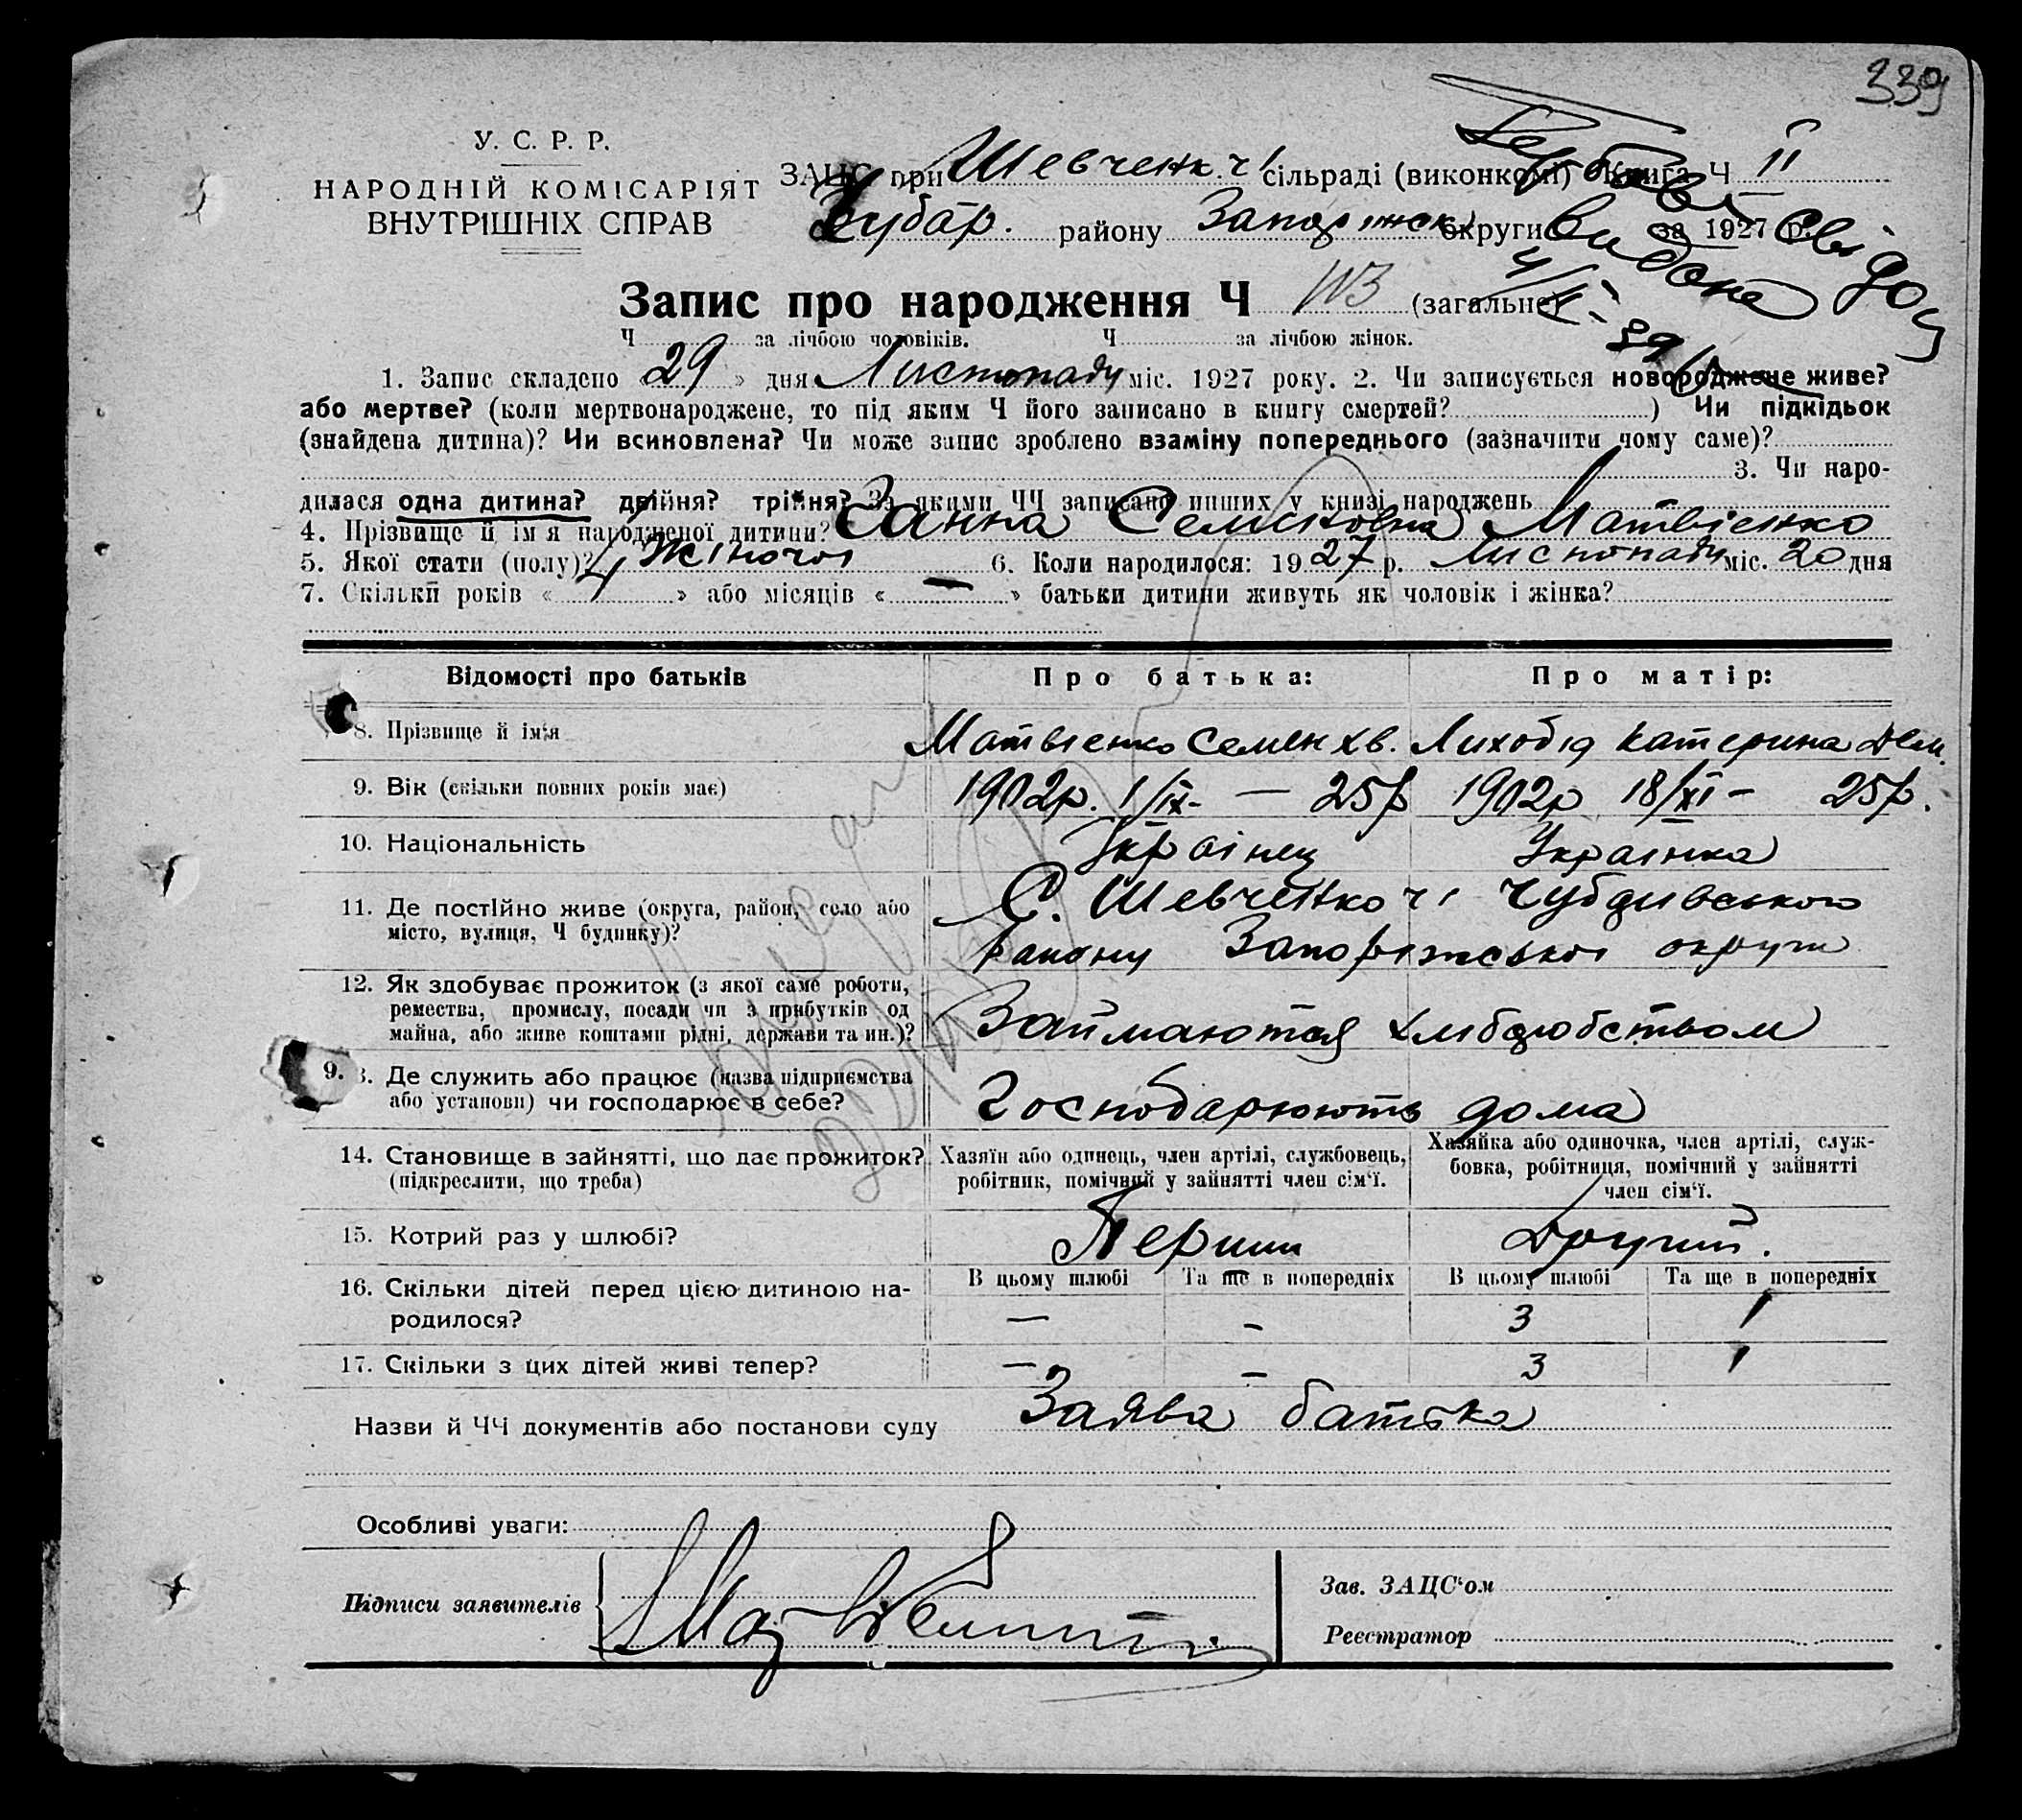 339
У. С. Р. Р.
НАРОДНІЙ КОМІСАРІЯТ
ВНУТРІШНІХ СПРАВ
ЗАЦС при Шевченк. сільраді (виконкомі) Книга Ч II
Чубар. району Запоріжськ. округи за 1927 р.
видана
Запис про народження Ч 113 (загальне)
Ч за лічбою чоловіків. Ч за лічбою жінок.
1. Запис складено «29» дня Листопаду міс. 1927 року. 2. Чи записується новороджене живе?
або мертве? (коли мертвонароджене, то під яким Ч його записано в книгу смертей? ) Чи підкідьок
(знайдена дитина)? Чи всиновлена? Чи може запис зроблено взаміну попереднього (зазначити чому саме)?
3. Чи наро-
дилася одна дитина? двійня? трійня? За якими ЧЧ записано инших у книзі народжень
4. Прізвище й ім'я народженої дитини? Ганна Семеновна Матвієнко
5. Якої стати (полу)? Жіночоі 6. Коли народилося: 1927 р. Листопаду міс. 20 дня
7. Скільки років «4» або місяців «—» батьки дитини живуть як чоловік і жінка?
Відомості про батьків Про батька: Про матір:
8. Прізвище й ім'я Матвієнко Семен хв. Лихобід Катерина Дем.
9. Вік (скільки повних років має) 1902р. 1/IX - — 25р 1902р 18/XI - 25р.
10. Національність Украінец Украінка
11. Де постійно живе (округа, район, село або С. Шевченко Чубарівського
місто, вулиця, Ч будинку)? району Запоріжськоі округи
12. Як здобуває прожиток (з якої саме роботи,
ремества, промислу, посади чи з прибутків од
майна, або живе коштами рідні, держави та ин.)? Займаются хліборобством
9. Де служить або працює (назва підприємства
або установи) чи господарює в себе? Господарюють дома
14. Становище в зайнятті, що дає прожиток?
(підкреслити, що треба)
Хазяїн або одинець, член артілі, службовець,
робітник, помічний у зайнятті член сім'ї.
Хазяйка або одиночка, член артілі, служ-
бовка, робітниця, помічний у зайнятті
член сім'ї.
15. Котрий раз у шлюбі? Перший Другий.
В цьому шлюбі Та ще в попередніх В цьому шлюбі Та ще в попередніх
16. Скільки дітей перед цією дитиною на-
родилося? — - 3 1
17. Скільки з цих дітей живі тепер? — - 3 1
Назви й ЧЧ документів або постанови суду Заява батька
Особливі уваги:
Підписи заявителів
Зав. ЗАЦС'ом
Реєстратор